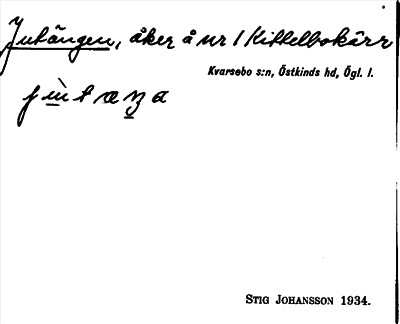 Jutängen, åker å nr 1 Kittelbokärr
Kvarsebo s:n, Östkinds hd, Ögl. l.
STIG JOHANSSON 1934.